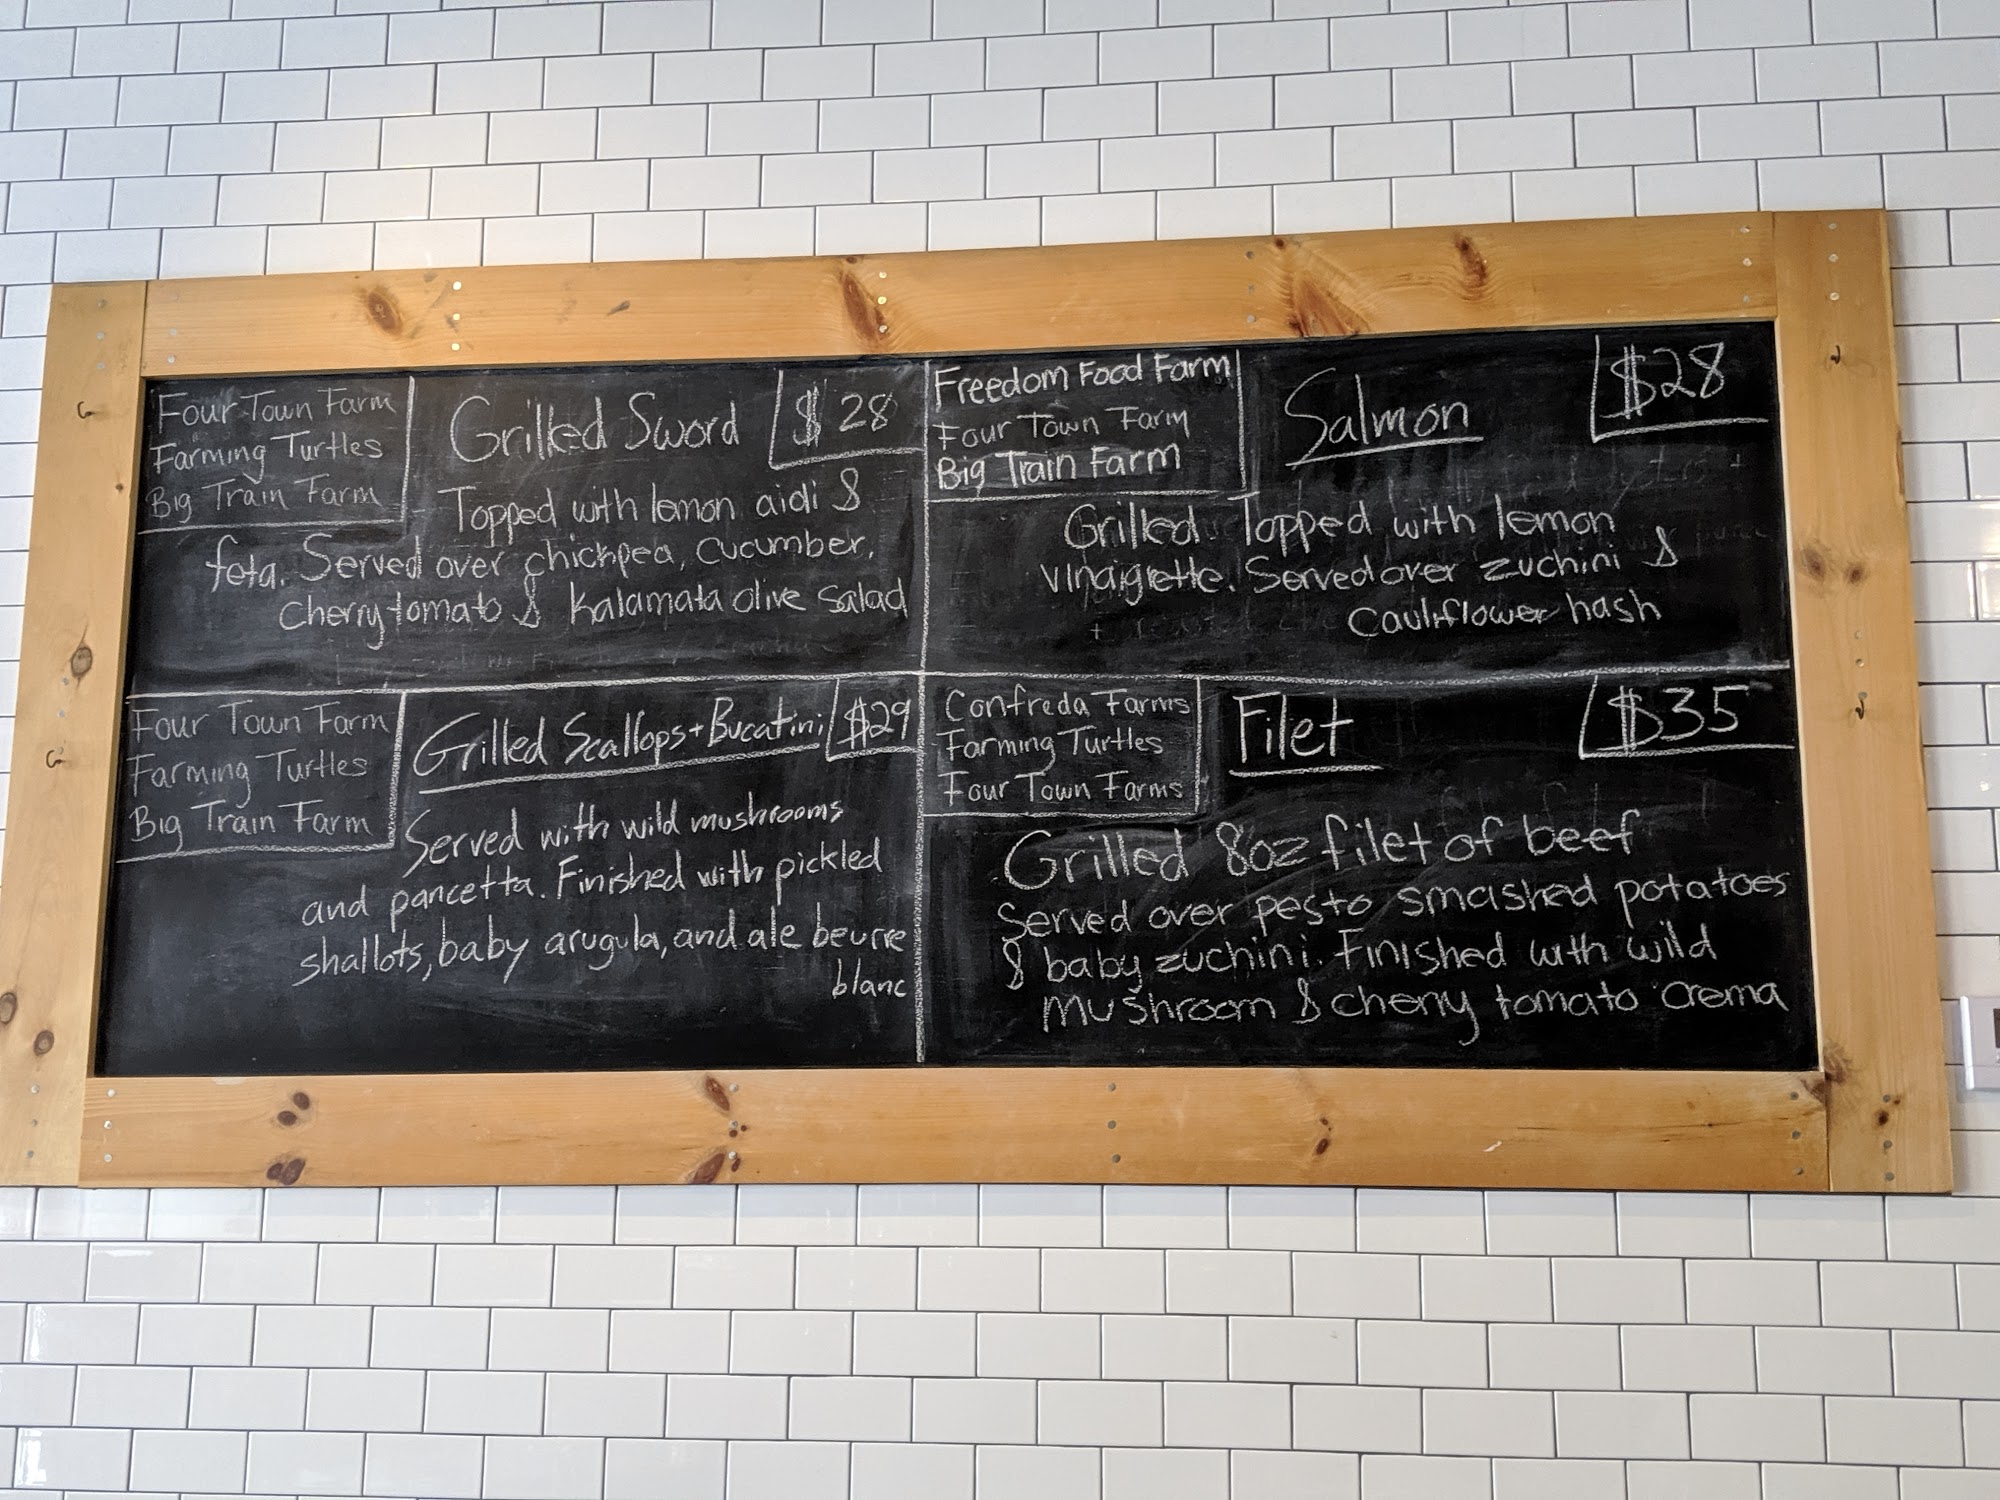 Four Town Farm
Farming Turtles
Big Train Farm
Grilled Sword
$28
Topped with lemon aioli &
feta. Served over chickpea, cucumber,
Cherry tomato & Kalamata olive salad
Freedom Food Farm
Four Town Farm
Big Train Farm
Salmon
$28
Grilled Topped with lemon
vinaigrette. Served over zuchini &
Cauliflower hash
Four Town Farm
Farming Turtles
Big Train Farm
Grilled Scallops + Bucatini
$29
Served with wild mushrooms
and pancetta. Finished with pickled
shallots, baby arugula, and ale beurre
blanc
Confreda Farms
Farming Turtles
Four Town Farms
Filet
$35
Grilled 8oz filet of beef
Served over pesto smashed potatoes
& baby zuchini. Finished with wild
mushroom & cherry tomato crema